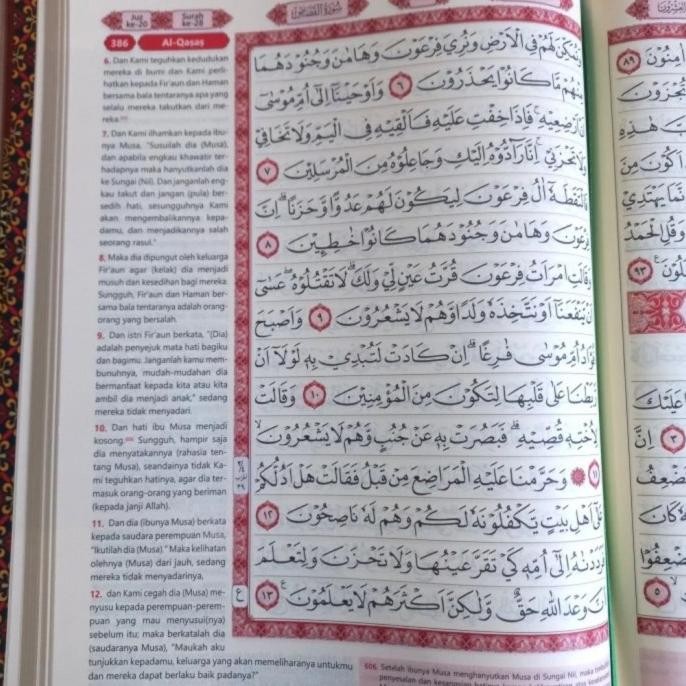 Juz
ke-20
Surah
ke-28
سُوْرَةُ الْقَصَصِ
386 Al-Qaṣaṣ
6. Dan Kami teguhkan kedudukan
mereka di bumi dan Kami perli-
hatkan kepada Fir'aun dan Haman
bersama bala tentaranya apa yang
selalu mereka takutkan dari me-
reka.
7. Dan Kami ilhamkan kepada ibu-
nya Musa, "Susuilah dia (Musa),
dan apabila engkau khawatir ter-
hadapnya maka hanyutkanlah dia
ke Sungai (Nil). Dan janganlah eng-
kau takut dan jangan (pula) ber-
sedih hati, sesungguhnya Kami
akan mengembalikannya kepa-
damu, dan menjadikannya salah
seorang rasul."
8. Maka dia dipungut oleh keluarga
Fir'aun agar (kelak) dia menjadi
musuh dan kesedihan bagi mereka.
Sungguh, Fir'aun dan Haman ber-
sama bala tentaranya adalah orang-
orang yang bersalah.
9. Dan istri Fir'aun berkata, "(Dia)
adalah penyejuk mata hati bagiku
dan bagimu. Janganlah kamu mem-
bunuhnya, mudah-mudahan dia
bermanfaat kepada kita atau kita
ambil dia menjadi anak," sedang
mereka tidak menyadari.
10. Dan hati ibu Musa menjadi
kosong. Sungguh, hampir saja
dia menyatakannya (rahasia ten-
tang Musa), seandainya tidak Ka-
mi teguhkan hatinya, agar dia ter-
masuk orang-orang yang beriman
(kepada janji Allah).
11. Dan dia (ibunya Musa) berkata
kepada saudara perempuan Musa,
"Ikutilah dia (Musa)." Maka kelihatan
olehnya (Musa) dari jauh, sedang
mereka tidak menyadarinya,
12. dan Kami cegah dia (Musa) me-
nyusu kepada perempuan-perem-
puan yang mau menyusui(nya)
sebelum itu; maka berkatalah dia
(saudaranya Musa), "Maukah aku
tunjukkan kepadamu, keluarga yang akan memeliharanya untukmu
dan mereka dapat berlaku baik padanya?"
وَنُمَكِّنَ لَهُمْ فِى الْاَرْضِ وَنُرِيَ فِرْعَوْنَ وَهَامٰنَ وَجُنُوْدَهُمَا
مِنْهُمْ مَّا كَانُوْا يَحْذَرُوْنَ ٦ وَاَوْحَيْنَآ اِلٰٓى اُمِّ مُوْسٰٓى
اَنْ اَرْضِعِيْهِۚ فَاِذَا خِفْتِ عَلَيْهِ فَاَلْقِيْهِ فِى الْيَمِّ وَلَا تَخَافِيْ
وَلَا تَحْزَنِيْۚ اِنَّا رَاۤدُّوْهُ اِلَيْكِ وَجَاعِلُوْهُ مِنَ الْمُرْسَلِيْنَ ٧
فَالْتَقَطَهٗٓ اٰلُ فِرْعَوْنَ لِيَكُوْنَ لَهُمْ عَدُوًّا وَّحَزَنًاۗ اِنَّ
فِرْعَوْنَ وَهَامٰنَ وَجُنُوْدَهُمَا كَانُوْا خٰطِـِٕيْنَ ٨
وَقَالَتِ امْرَاَتُ فِرْعَوْنَ قُرَّتُ عَيْنٍ لِّيْ وَلَكَۗ لَا تَقْتُلُوْهُۖ عَسٰٓى
اَنْ يَّنْفَعَنَآ اَوْ نَتَّخِذَهٗ وَلَدًا وَّهُمْ لَا يَشْعُرُوْنَ ٩ وَاَصْبَحَ
فُؤَادُ اُمِّ مُوْسٰى فٰرِغًاۗ اِنْ كَادَتْ لَتُبْدِيْ بِهٖ لَوْلَآ اَنْ
رَّبَطْنَا عَلٰى قَلْبِهَا لِتَكُوْنَ مِنَ الْمُؤْمِنِيْنَ ١٠ وَقَالَتْ
لِاُخْتِهٖ قُصِّيْهِۗ فَبَصُرَتْ بِهٖ عَنْ جُنُبٍ وَّهُمْ لَا يَشْعُرُوْنَۙ
١١ وَحَرَّمْنَا عَلَيْهِ الْمَرَاضِعَ مِنْ قَبْلُ فَقَالَتْ هَلْ اَدُلُّكُمْ
عَلٰٓى اَهْلِ بَيْتٍ يَّكْفُلُوْنَهٗ لَكُمْ وَهُمْ لَهٗ نَاصِحُوْنَ ١٢
فَرَدَدْنٰهُ اِلٰٓى اُمِّهٖ كَيْ تَقَرَّ عَيْنُهَا وَلَا تَحْزَنَ وَلِتَعْلَمَ
اَنَّ وَعْدَ اللّٰهِ حَقٌّ وَّلٰكِنَّ اَكْثَرَهُمْ لَا يَعْلَمُوْنَ ١٣
ع
606. Setelah ibunya Musa menghanyutkan Musa di Sungai Nil, maka
penyesalan dan
اٰمِنُوْنَ ٨٩
تُجْزَوْنَ
هٰذِهِ
اَكُوْنَ مِنَ
يَهْتَدِيْ
وَقُلِ الْحَمْدُ
٩٣
عَلَيْكَ
٣ اِنَّ
كَانَ
٥